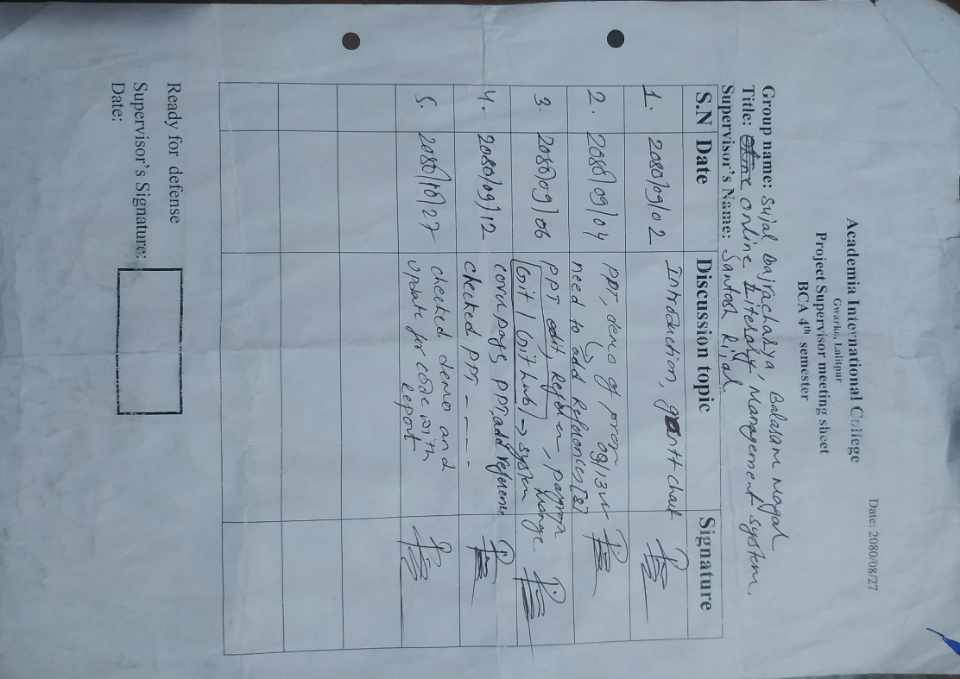 Date: 2080/08/27
Academia International College
Gwarko, Lalitpur
Project Supervisor meeting sheet
BCA 4th semester
Group name: Sujal bajracharya, Balaram Magar
Title: online Literary Management system.
Supervisor's Name: Santosh Rijal
S.N Date Discussion topic Signature
1. 2080/09/02 Introduction, grantt chart
2. 2080/09/04 PPT, demo of 09/13
need to add References [8]
3. 2080/09/06 PPT edit, Refer, change
Git / Github → system
4. 2080/09/12 PPT, add reference
checked PPT
5. 2080/10/27 checked demo and
update for code with
report
Ready for defense
Supervisor's Signature:
Date: